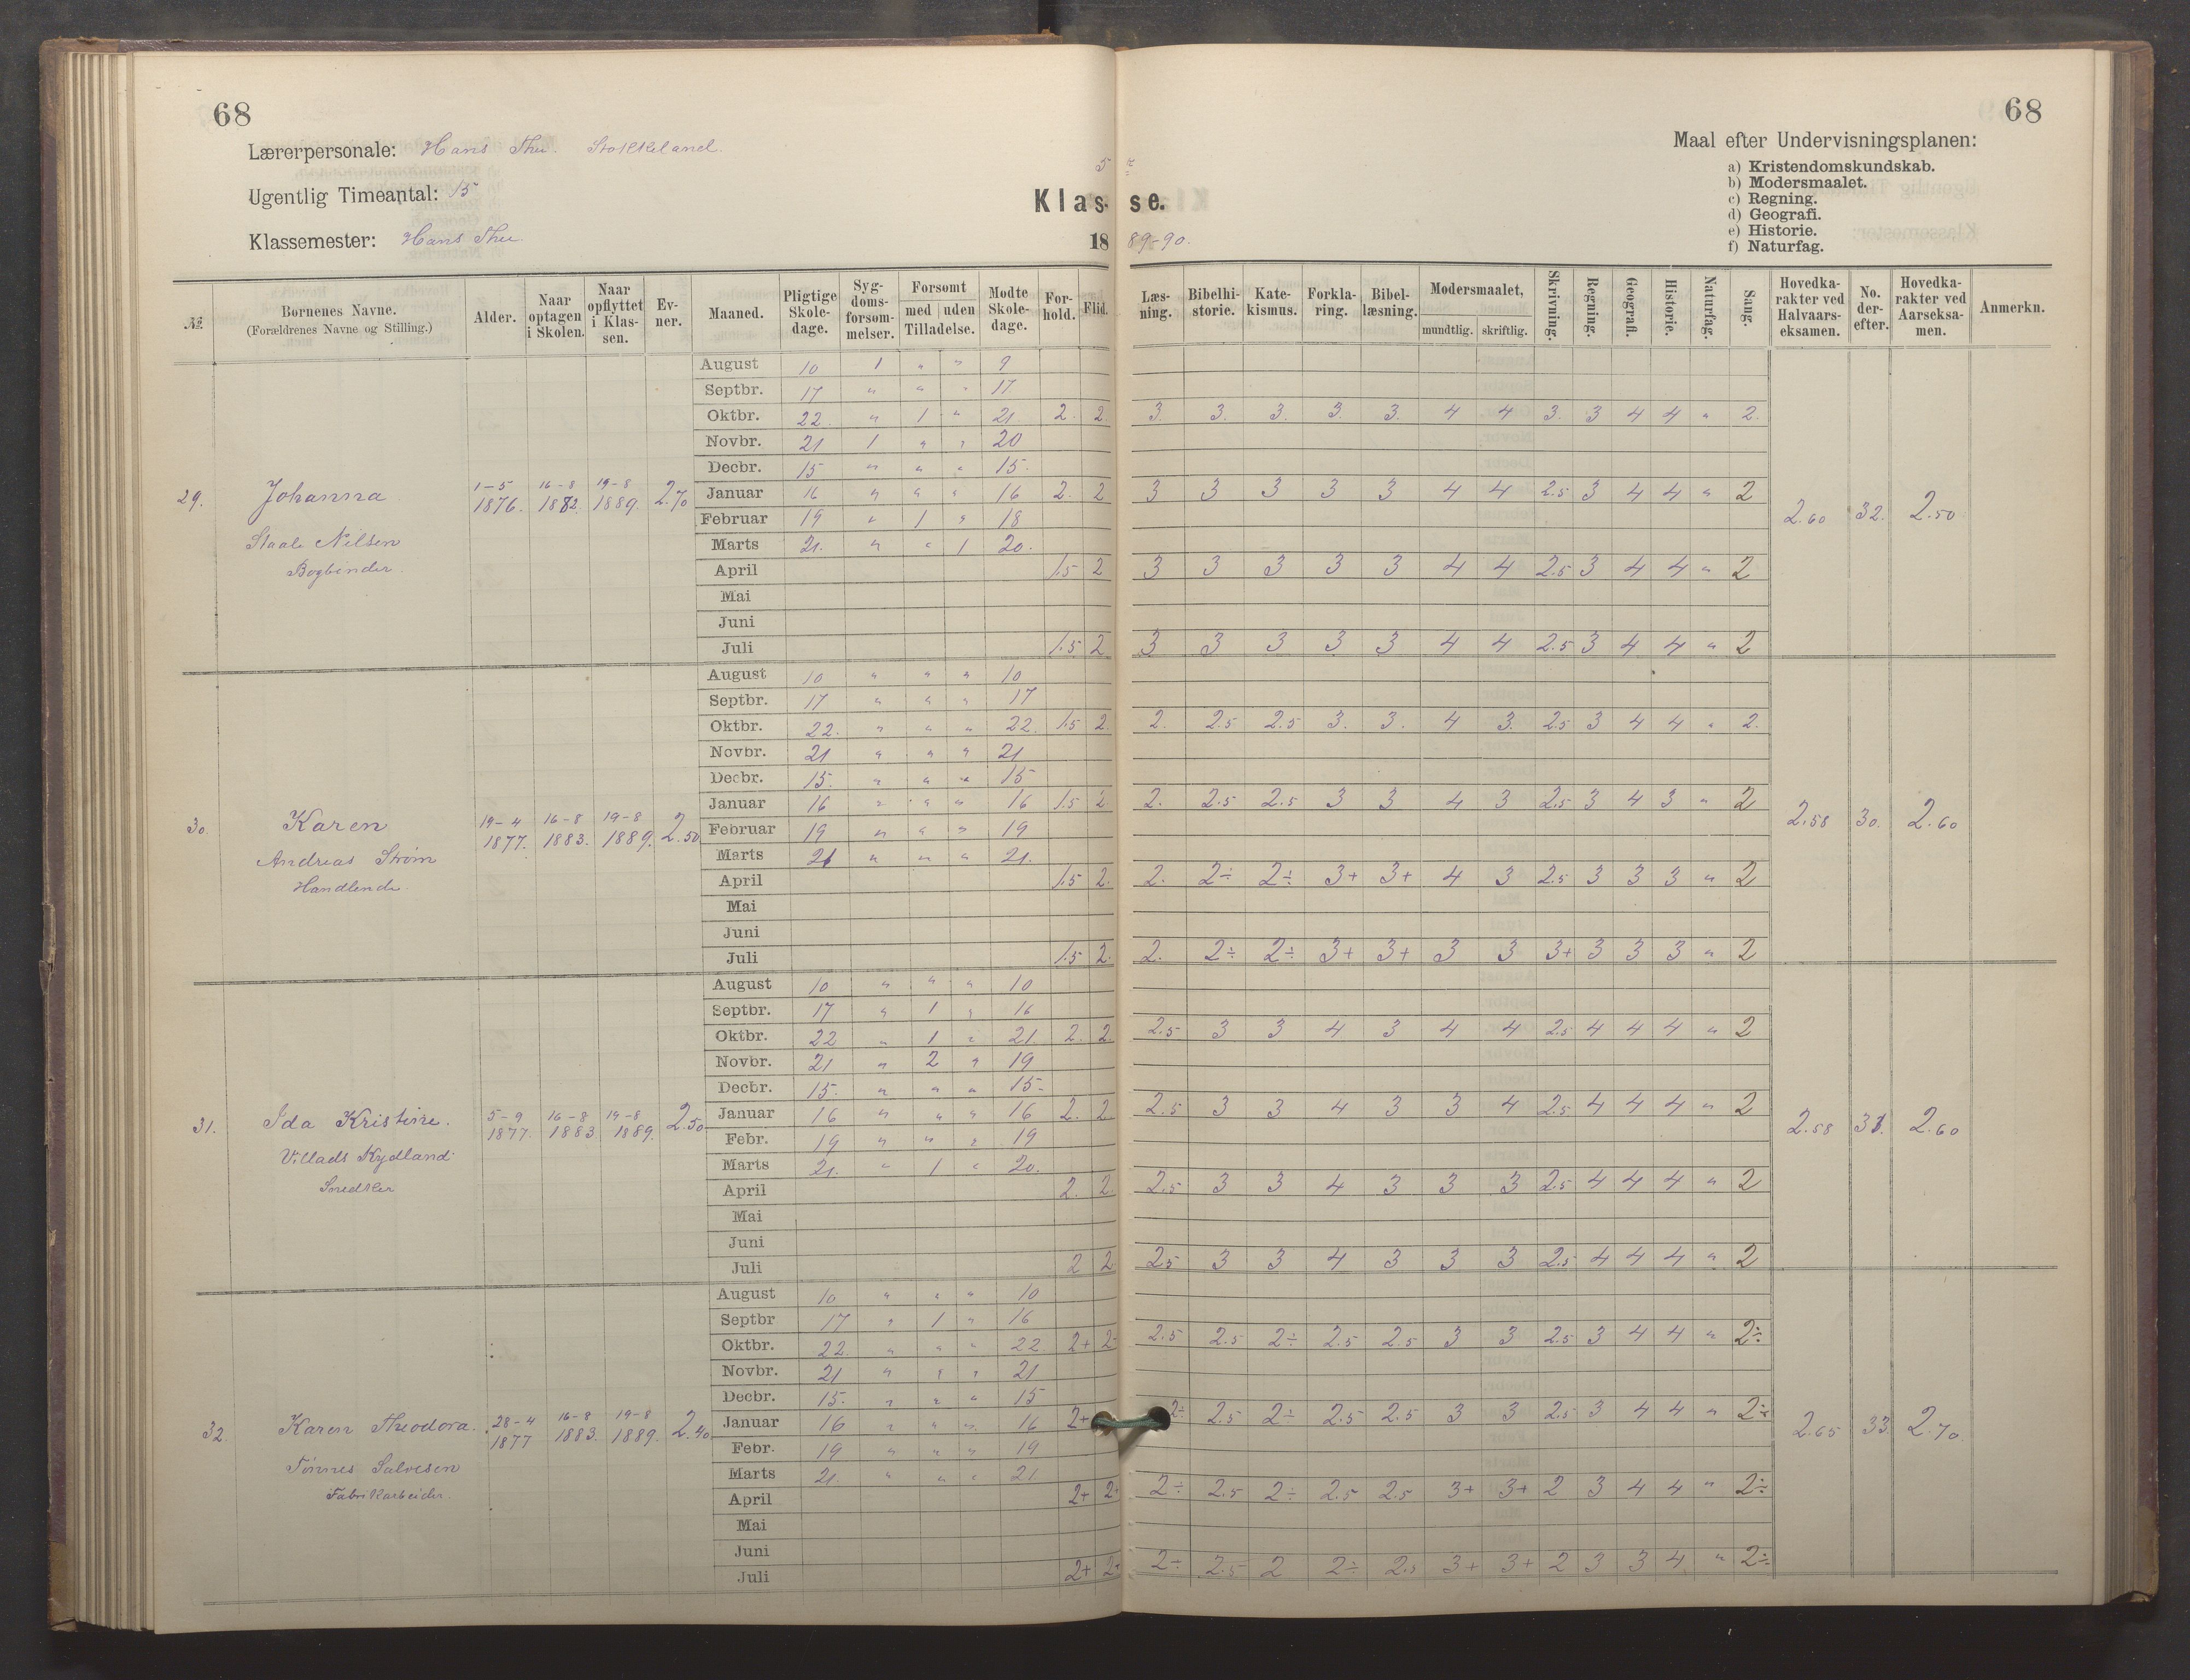 68
68
Lærerpersonale: Hans Thu. Stokkeland.
Ugentlig Timeantal: 15
Klassemester: Hans Thu.
5
Klas- se.
18 89-90.
Maal efter Undervisningsplanen:
a) Kristendomskundskab.
b) Modersmaalet.
c) Regning.
d) Geografi.
e) Historie.
f) Naturfag.
№ Børnenes Navne. (Forældrenes Navne og Stilling.) Alder. Naar optagen i Skolen. Naar opflyttet i Klassen. Evner. Maaned. Pligtige Skoledage. Sygdomsforsommelser. Forsømt med uden Tilladelse. Mødte Skoledage. Forhold. Flid. Læsning. Bibelhistorie. Katekismus. Forklaring. Bibellæsning. Modersmaalet, mundtlig. skriftlig. Skrivning. Regning. Geografi. Historie. Naturfag. Sang. Hovedkarakter ved Halvaarseksamen. No. derefter. Hovedkarakter ved Aarseksamen. Anmerkn.
29. Johanna
Staale Nilsen
Bogbinder.
1-5 1876. 16-8 1882. 19-8 1889. 2.70
August 10 1 " " 9
Septbr. 17 " " " 17.
Oktbr. 22. " 1 " 21. 2. 2. 3. 3. 3. 3. 3. 4 4 3. 3 4 4 " 2.
Novbr. 21 1 " " 20
Decbr. 15 " " " 15.
Januar 16 " " " 16 2. 2 3 3 3 3 3 4 4 2.5 3 4 4 " 2
Februar 19 " 1 " 18
Marts 21. " " 1 20.
April 1.5 2 3 3 3 3 3 4 4 2.5 3 4 4 " 2
Mai
Juni
Juli 1.5 2 3 3 3 3 3 4 4 2.5 3 4 4 " 2
2.60 32. 2.50
30. Karen
Andreas Strøm
Handlende.
19-4 1877. 16-8 1883. 19-8 1889. 2.50
August 10 " " " 10
Septbr. 17 " " " 17
Oktbr. 22. " " " 22. 1.5 2. 2. 2.5 2.5 3. 3. 4 3. 2.5 3 4 4 " 2.
Novbr. 21 " " " 21
Decbr. 15. " " " 15
Januar 16 " " " 16 1.5 2. 2. 2.5 2.5 3 3 4 3 2.5 3 4 3 " 2
Februar 19 " " " 19
Marts 21 " " " 21.
April 1.5 2. 2. 2÷ 2÷ 3+ 3+ 4 3 2.5 3 3 3 " 2
Mai
Juni
Juli 1.5 2. 2. 2÷ 2÷ 3+ 3+ 3 3 3+ 3 3 3 " 2
2.58 30. 2.60
31. Ida Kristine.
Villads Kydland
Snedker
5-9 1877. 16-8 1883 19-8 1889. 2.50
August 10 " " " 10
Septbr. 17 " 1 " 16
Oktbr. 22 " 1 " 21. 2. 2. 2.5 3 3 4 3 4 4 2.5 4 4 4 " 2
Novbr. 21 " 2 " 19
Decbr. 15. " " " 15.
Januar 16 " " " 16 2. 2 2.5 3 3 4 3 3 4 2.5 4 4 4 " 2
Febr. 19 " " " 19
Marts 21. " 1 " 20.
April 2. 2. 2.5 3 3 4 3 3 3 2.5 4 4 4 " 2
Mai
Juni
Juli 2 2 2.5 3 3 4 3 3 3 2.5 4 4 4 " 2
2.58 31. 2.60
32. Karen Theodora.
Tønnes Salvesen
Fabrikarbeider.
28-4 1877 16-8 1883. 19-8 1889. 2.40
August 10 " " " 10
Septbr 17 " 1 " 16
Oktbr. 22. " " " 22 2+ 2 2.5 2.5 2÷ 2.5 2.5 3 3 2.5 3 4 4 " 2÷
Novbr. 21 " " " 21
Decbr. 15. " " " 15
Januar 16 " " " 16 2+ 2÷ 2.5 2÷ 2.5 2.5 3 3 2.5 3 4 4 " 2÷
Febr. 19 " " " 19
Marts 21. " " " 21
April 2+ 2+ 2÷ 2.5 2÷ 2.5 2.5 3+ 3+ 2 3 4 4 " 2÷
Mai
Juni
Juli 2+ 2+ 2÷ 2.5 2 2÷ 2.5 3+ 3+ 2 3 3 4 " 2÷
2.65 33. 2.70.